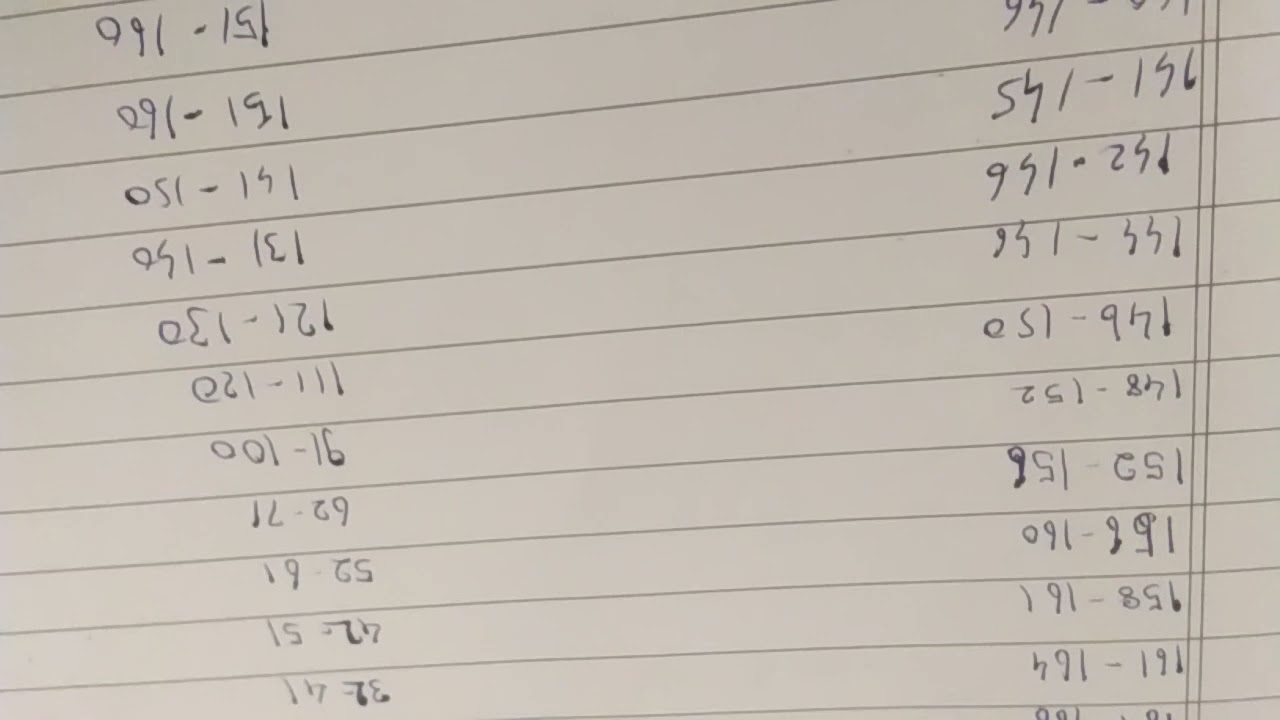 161 - 164 32-41
158 - 161 42-51
156-160 52-61
152-156 62-71
148-152 91-100
146-150 111-120
144-146 121-130
142-146 131-140
141-145 141-150
146 151-160
151-160